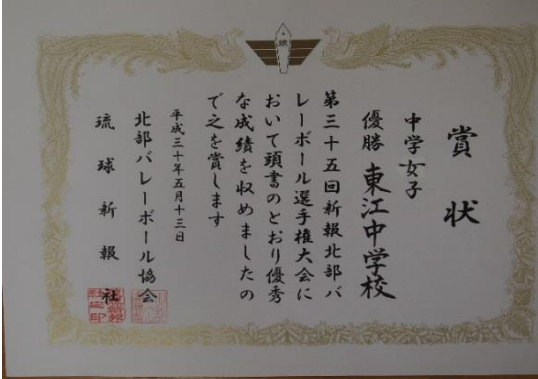 賞状
中学女子
優勝 東江中学校
第三十五回新報北部バ
レーボール選手権大会に
おいて頭書のとおり優秀
な成績を収めましたの
で之を賞します
平成三十年五月十三日
北部バレーボール協会
琉球新報社